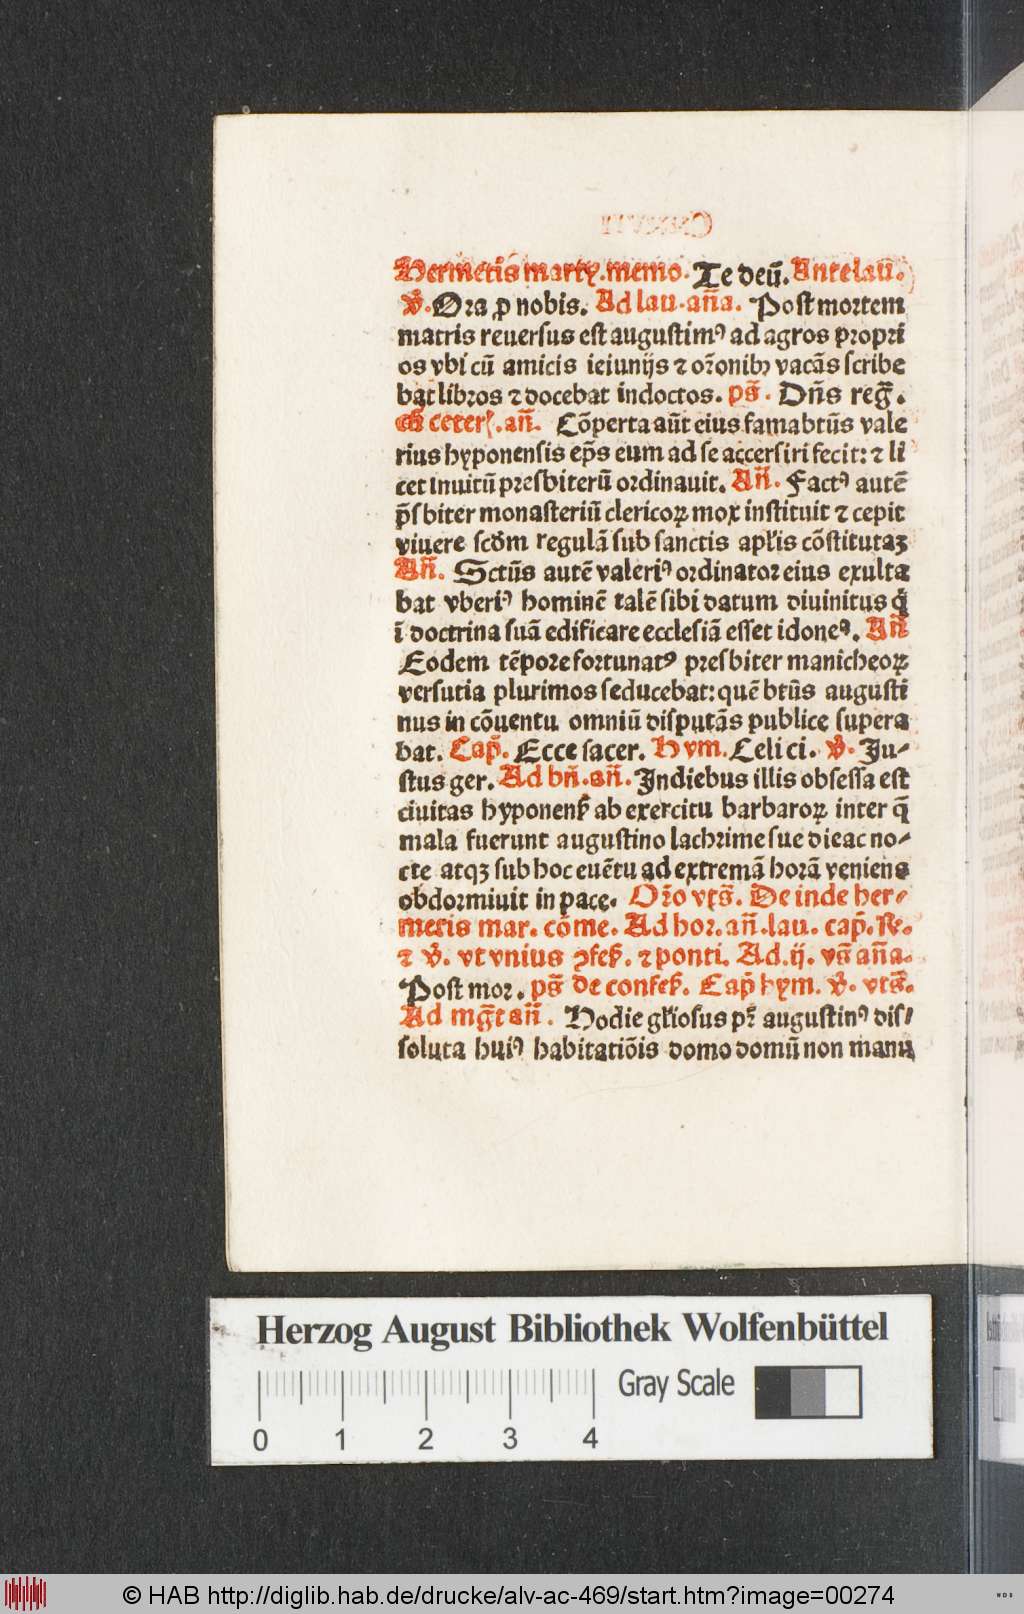 Hermetis martꝝ. memo. Te deū. Antelaū.
℣. Ora ꝓ nobis. Ad lau. añа. Post mortem
matris reuersus est augustimꝰ ad agros propri
os vbi cū amicis ieiunijs ⁊ or̄onibꝫ vacās scribe
bat libros ⁊ docebat indoctos. ps̄. Dn̄s reḡ.
cū ceter. an̄. Cōperta aūt eius fama btūs vale
rius hyponensis ep̄s eum ad se accersiri fecit: ⁊ li
cet inuitū presbiterū ordinauit. An̄. Factꝰ autē
p̄sbiter monasteriū clericoꝝ mox instituit ⁊ cepit
viuere scd̄m regulā sub sanctis apl̄is cōstitutaꝫ
An̄. Sctūs autē valeriꝰ ordinator eius exulta
bat vberiꝰ hominē talē sibi datum diuinitus q̇
ī doctrina suā edificare ecclesiā esset idoneꝰ. An̄
Eodem tēpore fortunatꝰ presbiter manicheoꝝ
versutia plurimos seducebat: quē btūs augusti
nus in cōuentu omniū disputās publice supera
bat. Cap̄. Ecce sacer. Hym. Celici. ℣. Ju-
stus ger. Ad bn̄. an̄. Jn diebus illis obsessa est
ciuitas hyponenẜ ab exercitu barbaroꝝ inter q̄
mala fuerunt augustino lachrime sue die ac no-
cte atqꝫ sub hoc euētu ad extremā horā veniens
obdormiuit in pace. Or̄o vts̄. De inde her-
metis mar. cōme. Ad hor. an̄. lau. cap̄. ℟.
⁊ ℣. vt vnius ꝯfeẜ. ⁊ ponti. Ad. ij. vs̄ an̄a.
Post mor. ps̄ de confeẜ. Cap̄ hym. ℣. vts̄.
Ad mg̅t an̄. Hodie gl̄iosus pr̄ augustinꝰ dis-
soluta huiꝰ habitatiōis domo domū non manu
Herzog August Bibliothek Wolfenbüttel
Gray Scale
0 1 2 3 4
© HAB http://diglib.hab.de/drucke/alv-ac-469/start.htm?image=00274